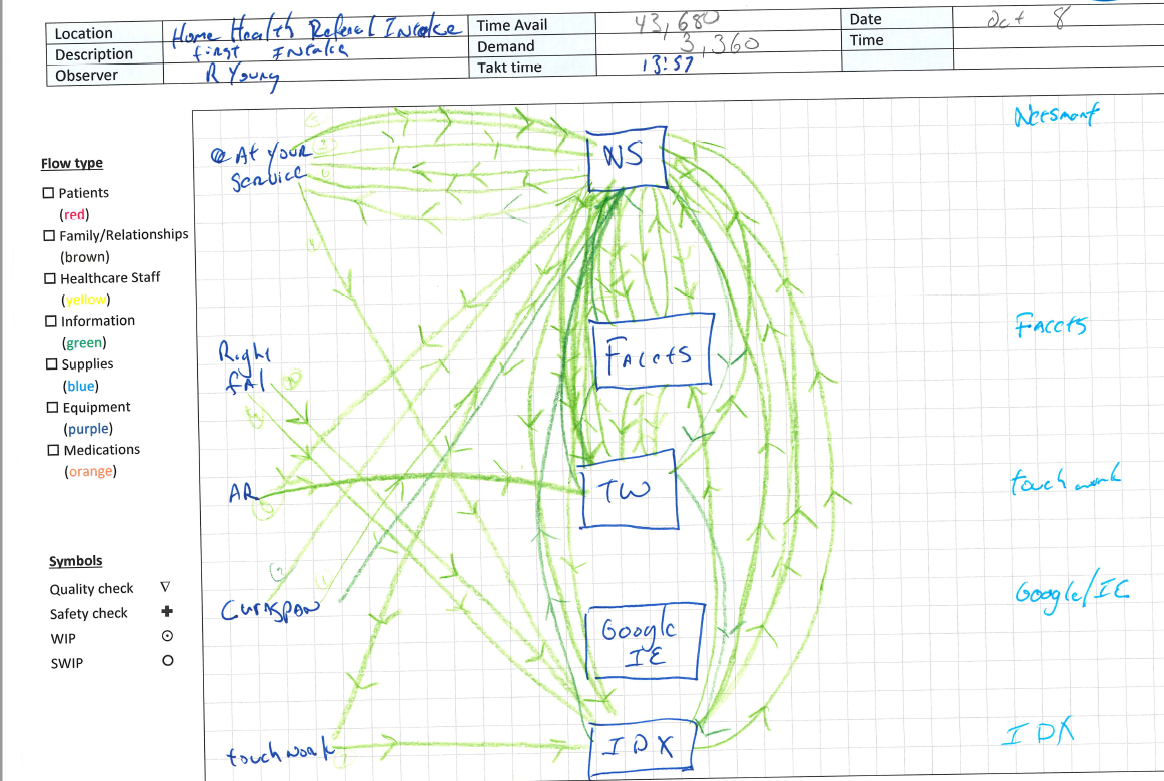 Location Home Health Referral Intake Time Avail 43,680 Date Oct 8
Description first Intake Demand 3,360 Time
Observer R Young Takt time 13:57
Flow type
Patients
(red)
Family/Relationships
(brown)
Healthcare Staff
(yellow)
Information
(green)
Supplies
(blue)
Equipment
(purple)
Medications
(orange)
Symbols
Quality check
Safety check
WIP
SWIP
@ At your
Service
Right
fAl
AR
Curaspan
touchwork
WS
Facets
TW
Google
IE
IDX
Facets
touch work
Google/IE
IDX